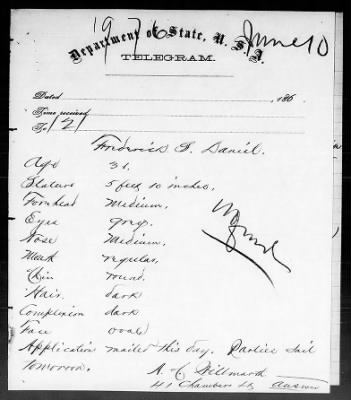 1976 June 10
Department of State, U.S.A.
TELEGRAM.
Dated 186
Time received
To 121
Frederick S. Daniel.
Age 31.
Stature 5 feet 10 inches.
Forehead Medium.
Eyes gray.
Nose Medium.
Mouth regular.
Chin round.
Hair dark
Complexion dark
Face oval
Application mailed this day. Parties sail
tomorrow.
A. C. Willmarth
41 Chambers St answer